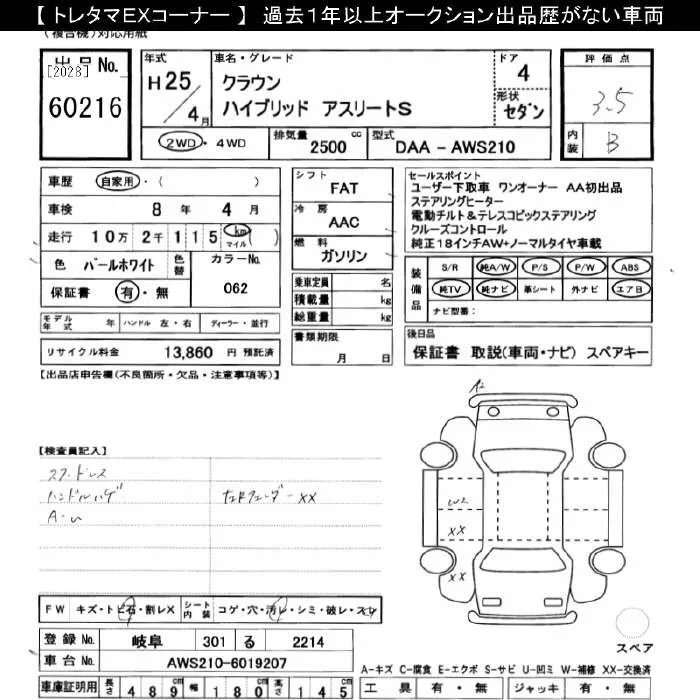 【 トレタマEXコーナー 】 過去1年以上オークション出品歴がない車両
(複合機)対応用紙
出品No.
[2028]
60216
年式
H25/4月
車名・グレード
クラウン
ハイブリッド アスリートS
ドア
4
形状
セダン
評価点
3.5
内装
B
2WD・4WD
排気量
2500 cc
型式
DAA - AWS210
車歴 自家用・( )
車検 8年 4月
走行 10万 2千 1 1 5 km マイル ( )
色 パールホワイト
色替
カラーNo.
062
保証書 有・無
モデル年式 年 ハンドル 左・右 ディーラー・並行
リサイクル料金 13,860 円 預託済
シフト
FAT
冷房
AAC
燃料
ガソリン
乗車定員 名
積載量 kg
総重量 kg
書類期限
月 日
セールスポイント
ユーザー下取車 ワンオーナー AA初出品
ステアリングヒーター
電動チルト&テレスコピックステアリング
クルーズコントロール
純正18インチAW+ノーマルタイヤ車載
装備品
S/R 純A/W P/S P/W ABS
純TV 純ナビ 革シート 外ナビ エアB
ナビ型番:
後日品
保証書 取説(車両・ナビ) スペアキー
【出品店申告欄(不良箇所・欠品・注意事項等)】
A2
【検査員記入】
スタッドレス
ハンドルハゲ
A-U
左Rフェンダー XX
W2
XX
XX
FW キズ・トビ石・割レX
シート内装 コゲ・穴・汚レ・シミ・破レ・スレ
スペア
登録No. 岐阜 301 る 2214
車台No. AWS210-6019207
車庫証明用 長さ 489cm 幅 180cm 高さ 145cm
A-キズ C-腐食 E-エクボ S-サビ U-凹ミ W-補修 XX-交換済
工具 有・無 ジャッキ 有・無